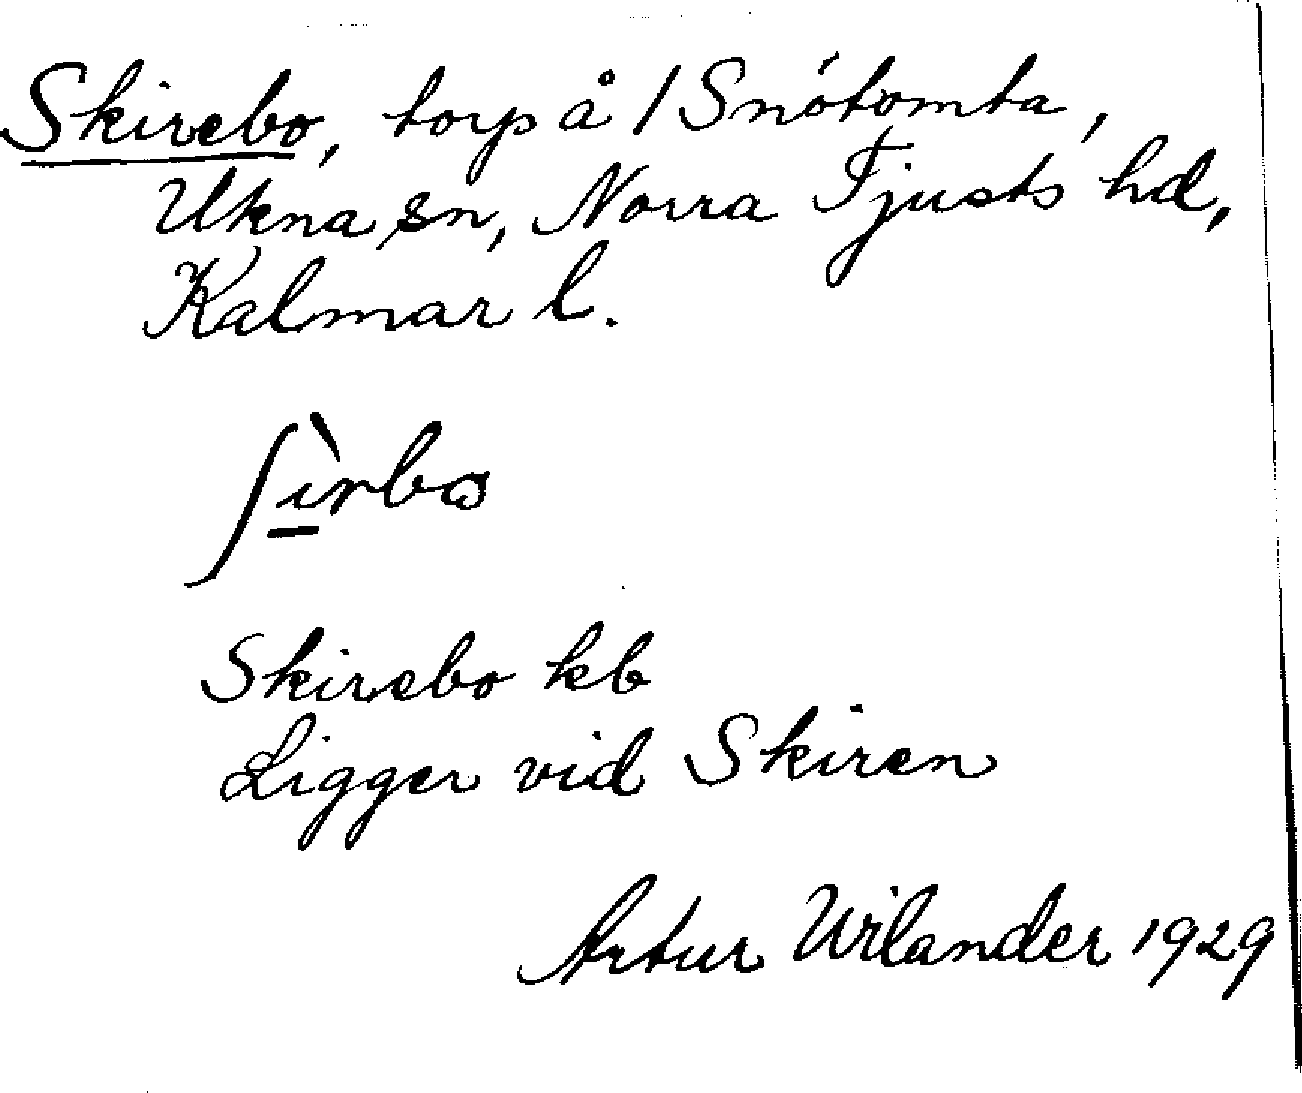 Skirebo, torp å /Snótomta,
Ukna sn, Norra Tjusts hd,
Kalmar l.
ʃì̠rbω
Skirebo kb
Ligger vid Skiren
Artur Wilander 1929